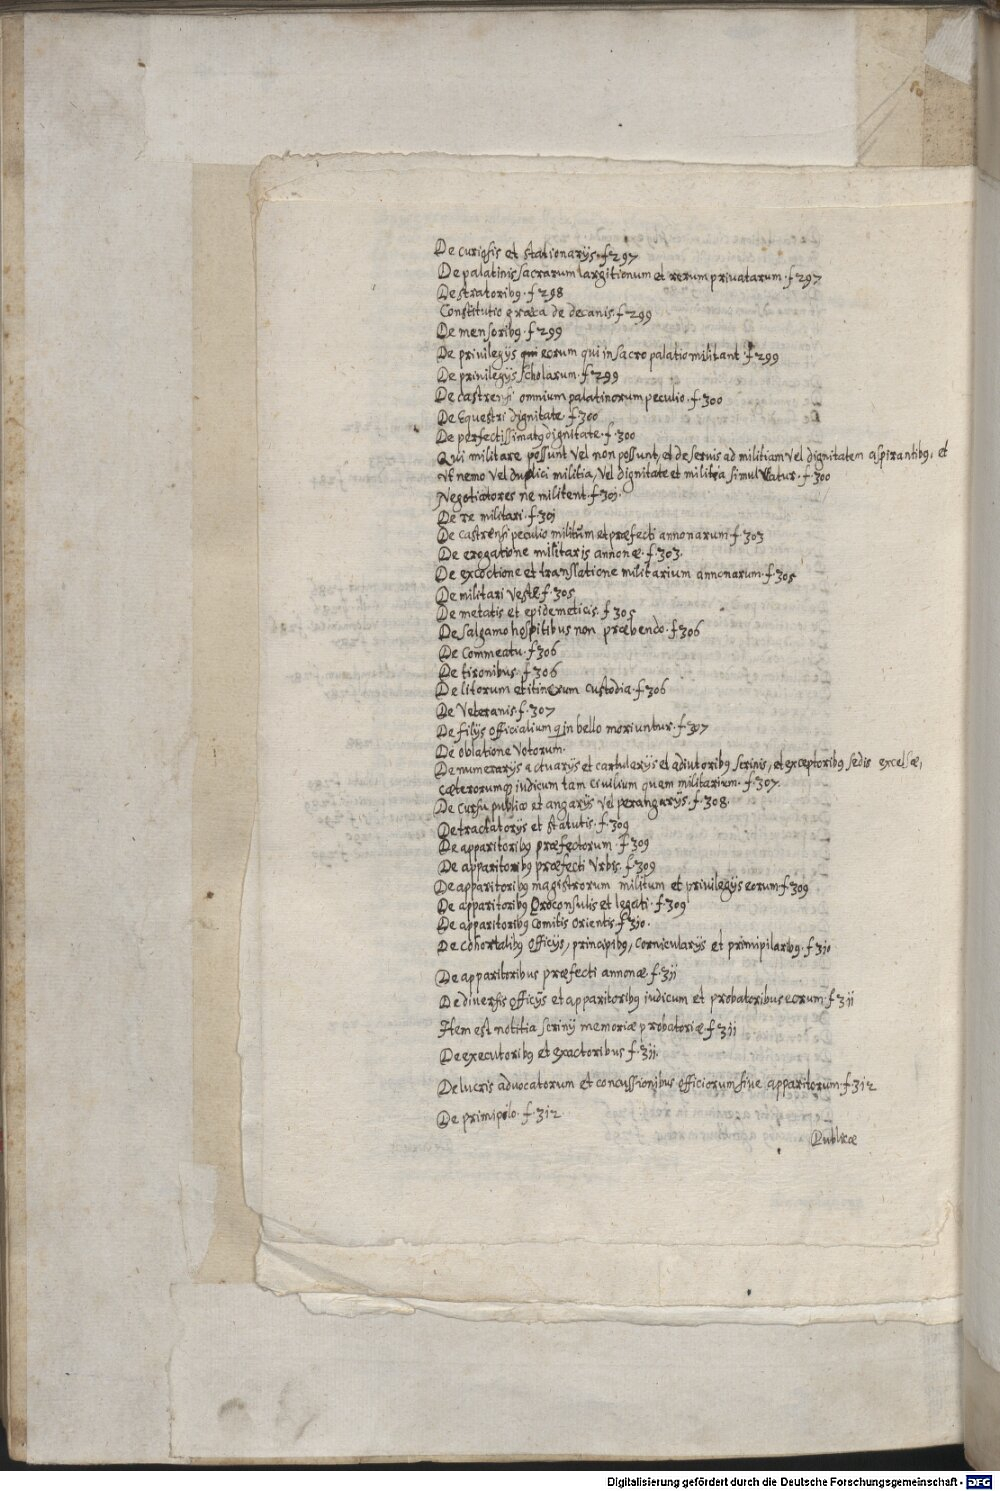 De curiosis et stationarijs. f 297
De palatinis sacrarum largitionum et rerum priuatarum. f 297
De stratoribꝫ. f 298
Constitutio græca de decanis. f 299
De mensoribꝫ. f 299
De privilegijs eorum qui in sacro palatio militant. f 299
De privilegijs scholarum. f 299
De castrensi omnium palatinorum peculio. f. 300
De Equestri dignitate. f 300
De perfectissimatꝫ dignitate. f. 300
Qui militare possunt vel non possunt, et de seruis ad militiam vel dignitatem aspirantibꝫ, et
vt nemo vel duplici militia, vel dignitate et militia simul vtatur. f. 300
Negotiatores ne militent. f 301.
De re militari. f. 301
De castrensi peculio militum et præfecti annonarum. f. 303
De erogatione militaris annonæ. f. 303.
De excoctione et translatione militarium annonarum. f. 305
De militari veste f. 305
De metatis et epidemeticis. f. 305
De salgamo hospitibus non præbendo. f 306
De Commeatu. f 306
De tironibus. f 306
De litorum et itinerum custodia. f 306
De Veteranis. f. 307
De filijs officialium q in bello moriuntur. f 307
De oblatione Votorum.
De numerarijs actuarijs et cartularijs et adiutoribꝫ scrinis, et exceptoribꝫ sedis excelsæ,
cæterorumqꝫ iudicum tam civilium quam militarium. f. 307.
De cursu publico et angarijs vel perangarijs. f. 308.
De tractatorijs et statutis. f 309
De apparitoribꝫ præfectorum. f 309
De apparitoribꝫ præfecti Vrbis. f 309
De apparitoribꝫ magistrorum militum et privilegijs eorum. f 309
De apparitoribꝫ Proconsulis et legati. f 309
De apparitoribꝫ Comitis Orientis. f 310.
De cohortalibꝫ officijs, principibꝫ, corniculariis et primipilaribꝫ. f 310
De apparitoribus præfecti annonæ. f. 311
De diuersis officijs et apparitoribꝫ iudicum et probatoribus eorum. f 311
Item est notitia scrinij memoriæ probatoriæ. f 311
De executoribꝫ et exactoribus f. 311.
De lucris advocatorum et concussionibus officiorum siue apparitorum. f 312
De primipilo. f 312
Publicæ
Digitalisierung gefördert durch die Deutsche Forschungsgemeinschaft - DFG